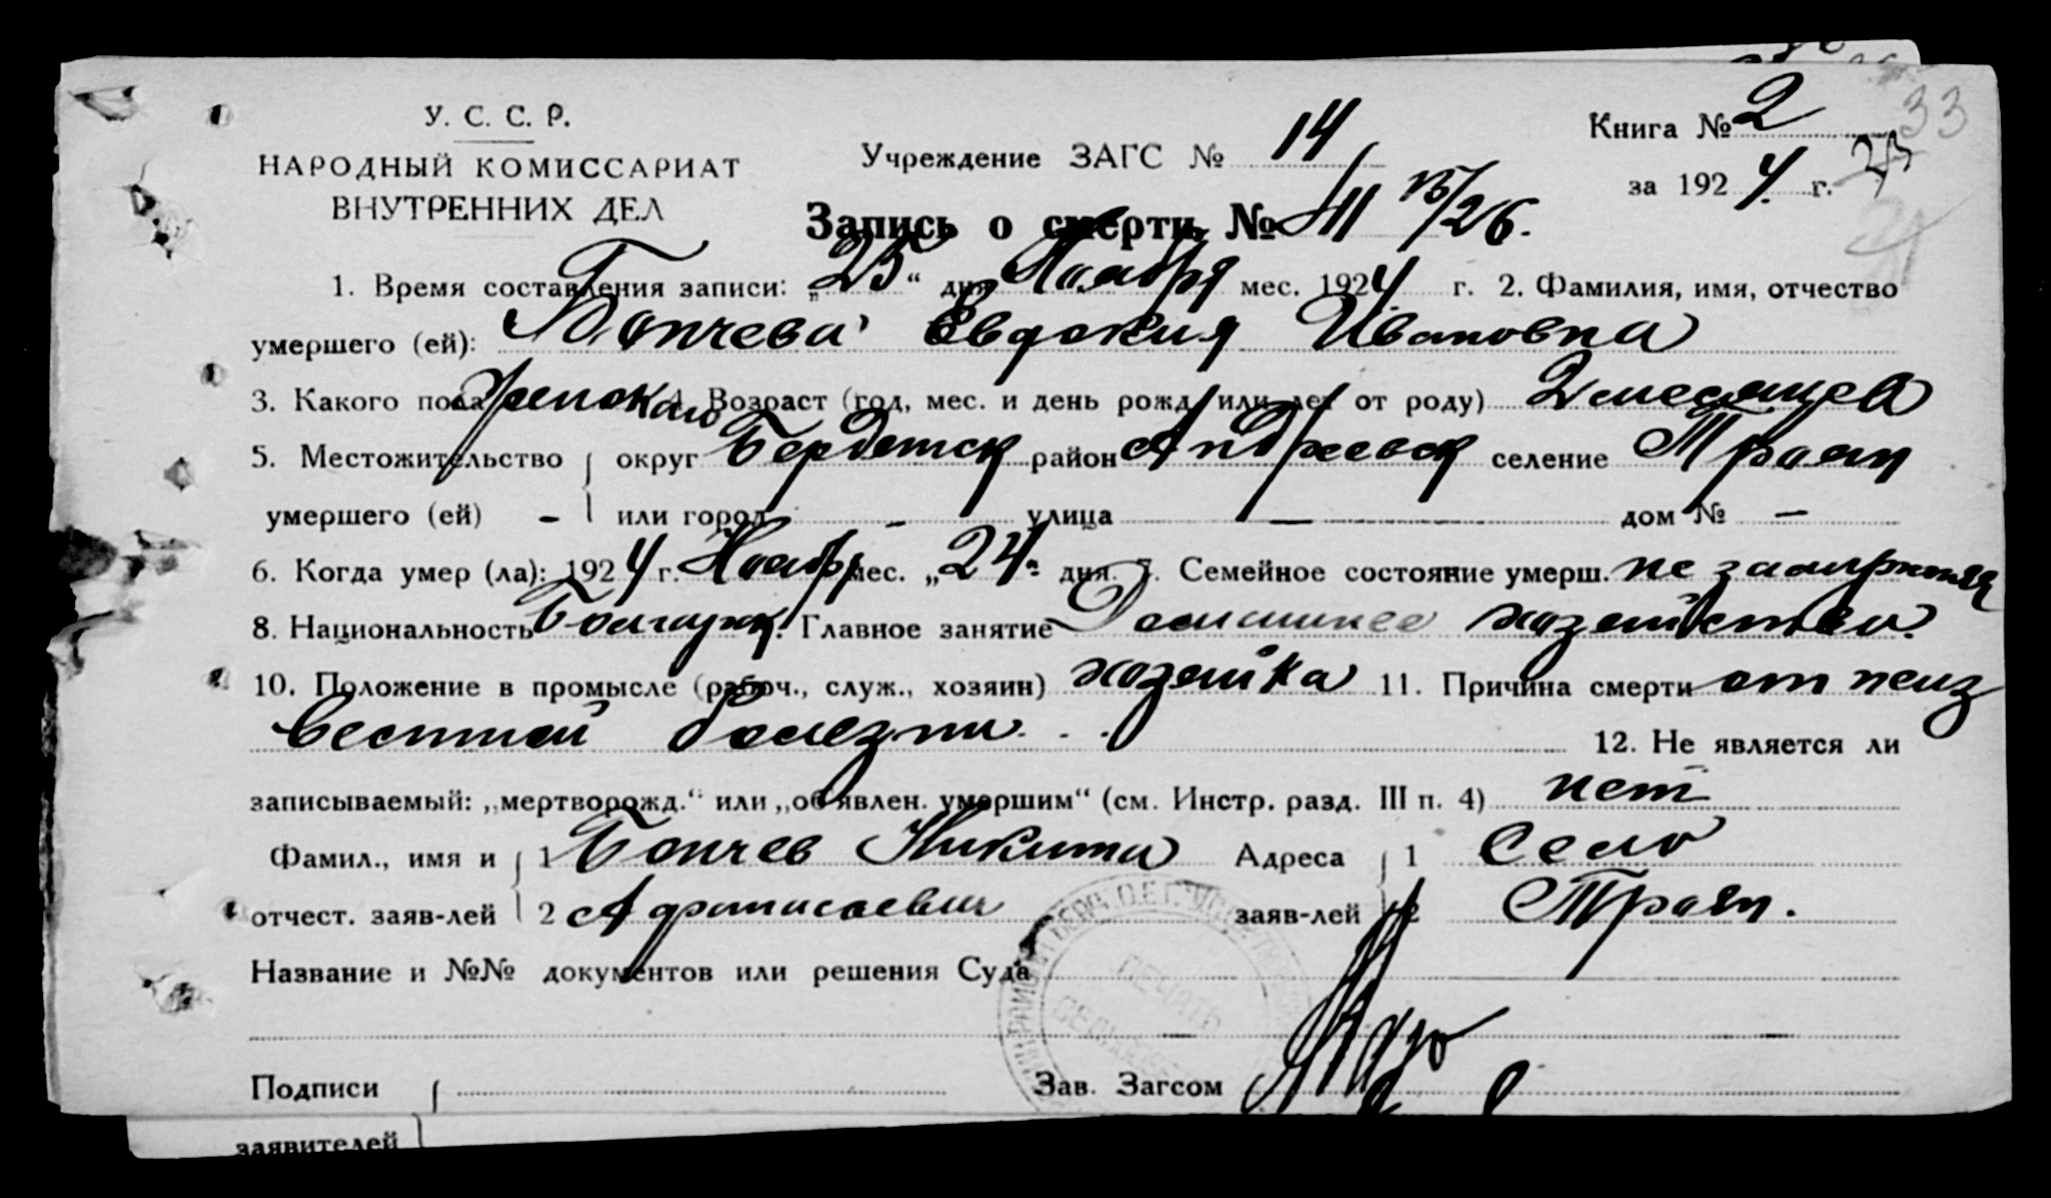 33
У. С. С. Р.
НАРОДНЫЙ КОМИССАРИАТ
ВНУТРЕННИХ ДЕЛ
Учреждение ЗАГС № 14
Книга № 2
за 1924 г.
Запись о смерти № 11 15/26.
1. Время составления записи: „25“ дня Ноября мес. 1924 г. 2. Фамилия, имя, отчество
умершего (ей): Бончева Евдокия Ивановна
3. Какого пола женскаго 4. Возраст (год, мес. и день рожд. или лет от роду) 2 месяцев
5. Местожительство округ Бердянск район Андреевск селение Траян
умершего (ей) - или город - улица — дом № —
6. Когда умер (ла): 1924 г. Ноября мес. „24“ дня. 7. Семейное состояние умерш. не замужняя
8. Национальность Болгарк. Главное занятие Домашнее хозяйство.
10. Положение в промысле (рабоч., служ., хозяин) хозяйка 11. Причина смерти от неиз
вестной болезни . . . 12. Не является ли
записываемый: „мертворожд.“ или „об'явлен. умершим“ (см. Инстр. разд. III п. 4) нет
Фамил., имя и 1 Бончев Никита Адреса 1 Село
отчест. заяв-лей 2 Афанасаевич заяв-лей 2 Траян.
Название и №№ документов или решения Суда
ПЕЧАТЬ
Подписи Зав. Загсом
заявителей